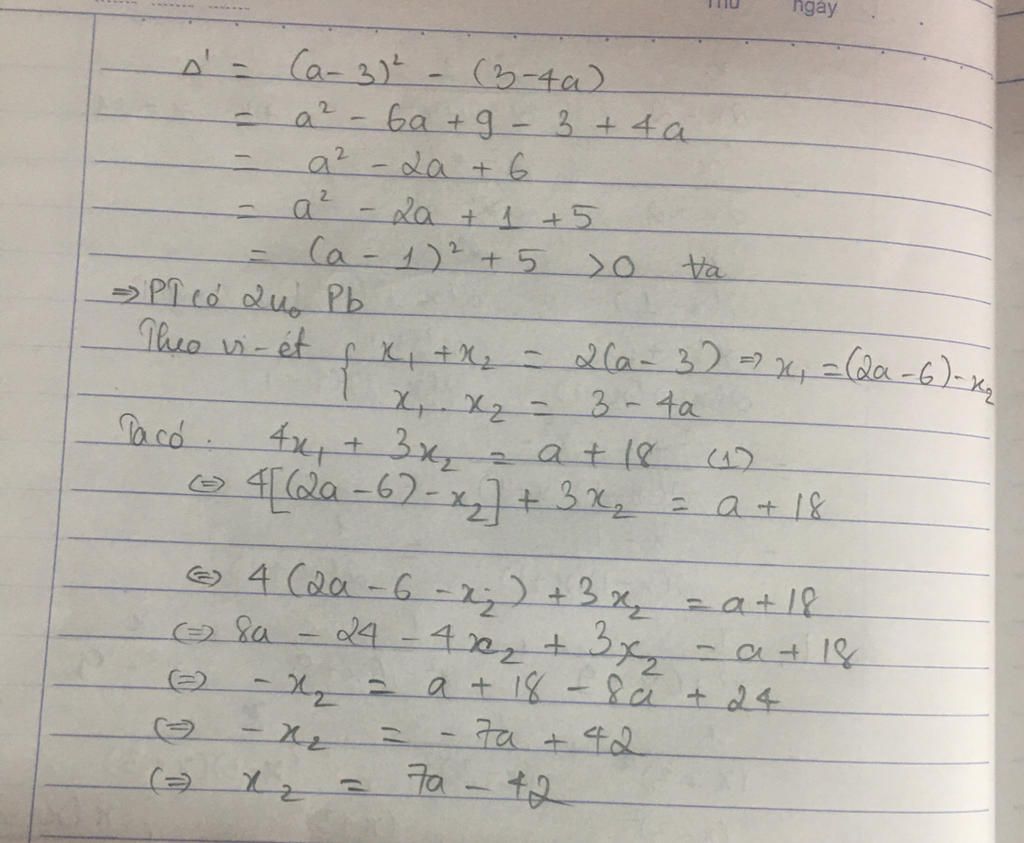 Thứ ngày
Δ' = (a-3)² - (3-4a)
= a² - 6a + 9 - 3 + 4a
= a² - 2a + 6
= a² - 2a + 1 + 5
= (a - 1)² + 5 >0 ∀a
⇒ PT có 2n₀ Pb
Theo vi-ét { x₁ + x₂ = 2(a-3) ⇒ x₁ = (2a-6) - x₂
x₁ . x₂ = 3 - 4a
Ta có . 4x₁ + 3x₂ = a + 18 (1)
⇔ 4[(2a-6) - x₂] + 3x₂ = a + 18
⇔ 4 (2a - 6 - x₂) + 3x₂ = a + 18
⇔ 8a - 24 - 4x₂ + 3x₂ = a + 18
⇔ - x₂ = a + 18 - 8a + 24
⇔ - x₂ = - 7a + 42
⇔ x₂ = 7a - 42